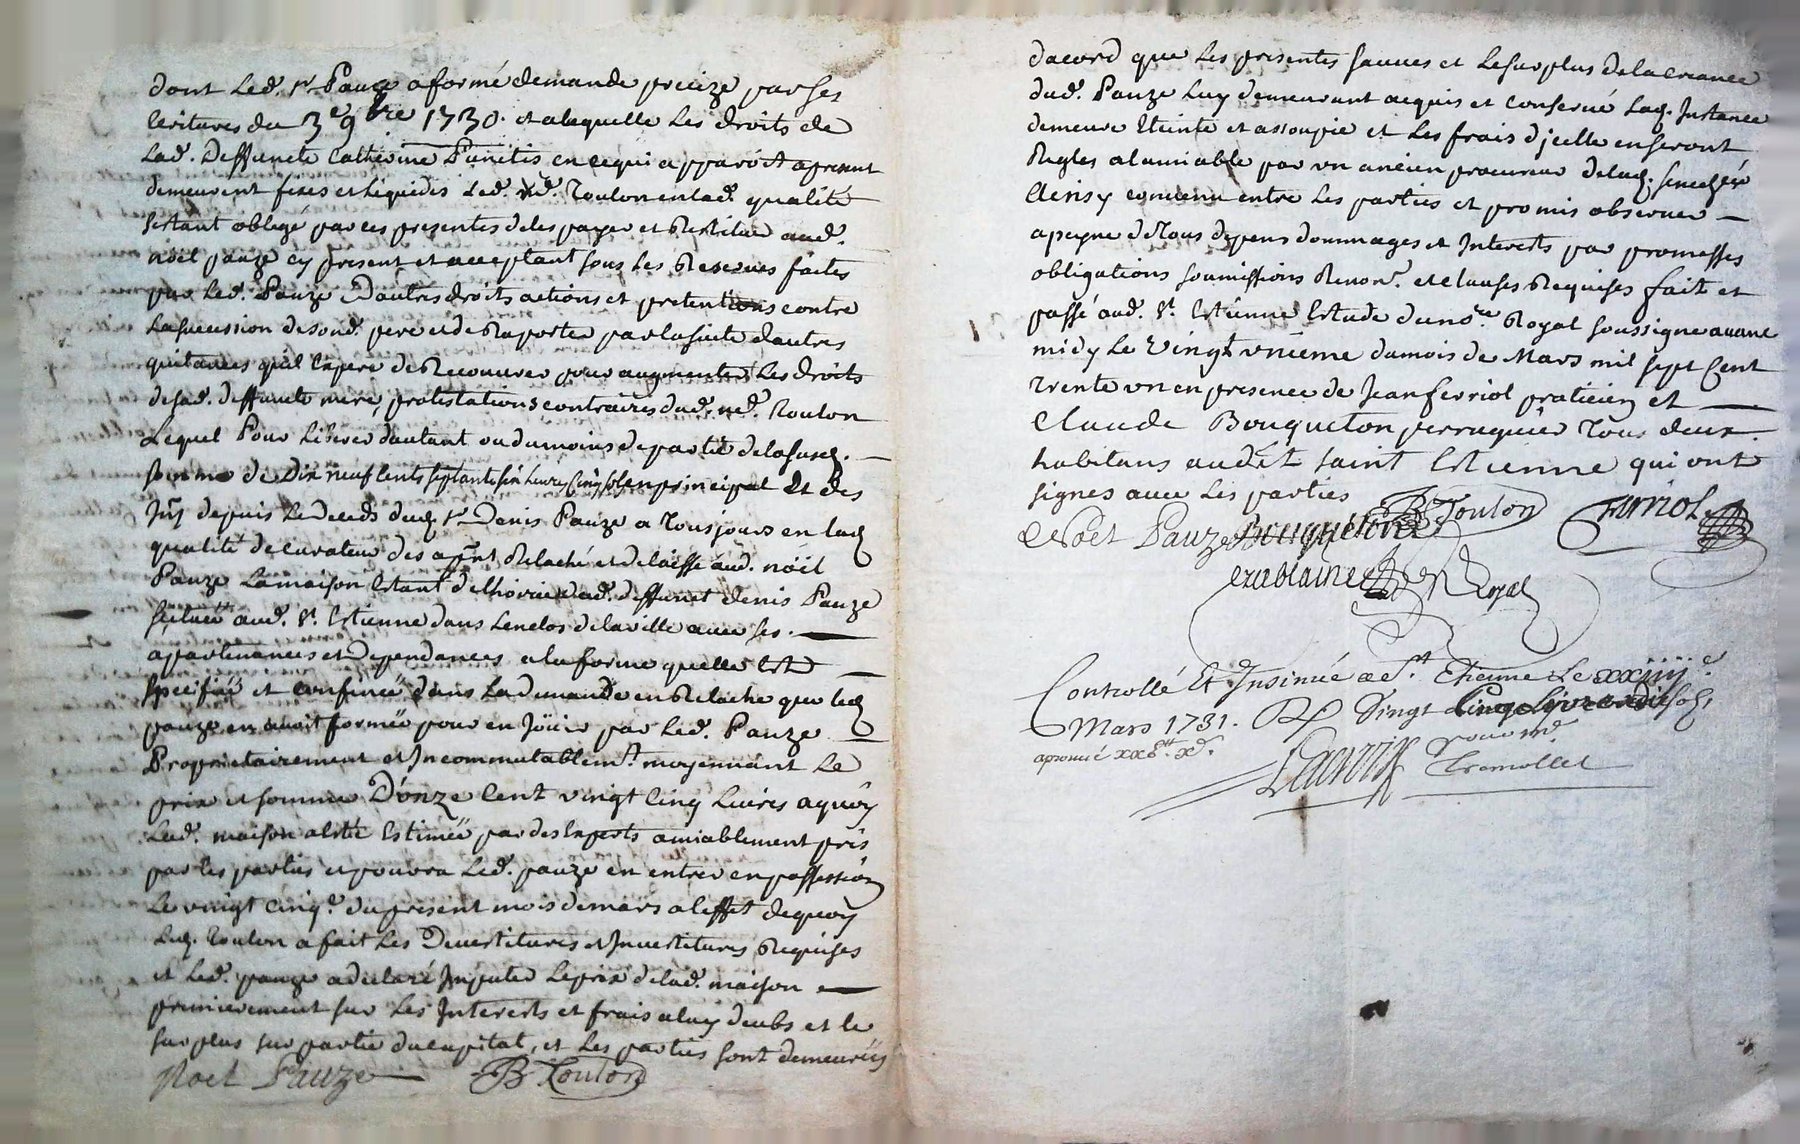 dont Led. Sr. Pauze a formé demande precize par ses
Ecritures du 3e 9bre 1730. et alaquelle Les droits de
Lad. Deffuncte Catherine Punctis en cequi apparoist apresent
demeurent fixes et Liquides Led. Toulon enlad. qualité
sestant obligé par ces presentes deles payer et Restituer aud.
nöel pauze cy present et acceptant sous Les Reserves faites
par Led. Pauze Dautres droits actions et pretentions contre
La succession desond. pere et de Raporter par lasuite dautres
quitances quil Espere de Recouvrer pour augmenter Les droits
desad. deffuncte mere, protestations contraires dud. Toulon
Lequel Pour Liberer dautant ou dumoins departie delasusd.
somme de Dix neuf Cents septante six Livres Cinq sols en principal Et des
Jnts depuis Le deceds dud. Sr. Denis Pauze a Tousjours en lad.
qualité de curateur des a present Relaché et delaissé aud. nöel
Pauze La maison Estant de Lhoirie dud. deffunct denis Pauze
scituée aud. St. Estienne dans Lenclos delaville avec ses
apartenances et Dependances a la forme quelle Est
specifiée et confinée dans La demande en Relache que led.
pauze en avoit formée pour en Jöuir par Led. Pauze
Proprietairement et Jncommutablemt. moyennant Le
prix et somme D'onze Cent vingt Cinq Livres aquoy
Lad. maison a Eté Estimée par des Experts amiablement pris
par les parties et pouvra Led. pauze en entrer en possession
Le vingt Cinqe. du present mois demars a leffet dequoy
Led. Toulon a fait Les Devestitures et Jnvestitures Requises
et Led. pauze a declaré Jmputer Leprix delad. maison
premierement sur Les Jnterests et frais aluy deubs et le
surplus sur partie ducapital, et Les parties sont demeurées
Noel Pauze B. Toulon
dacord que Les presentes sauves et Le surplus delacreance
dud. Pauze Luy demeurant acquis et conservé Lad. Jnstance
demeure Eteinte et assoupie et Les frais djcelle en seront
Regles alamiable par un ancien procureur delad. senechée
Ainsy convenu entre Les parties et promis observer
apeyne deTous depens dommages et Jnterests par promesses
obligations soumissions Renon. et clauses Requises fait et
passé aud. St. Estienne Estude dunore. Royal soussigne avant
midy Le Vingt unieme dumois de Mars mil sept Cent
Trente un en presence de Jean ferriol praticien et
Claude Bouqueton perruquier Tous deux
habitans audit saint Estienne qui ont
signes avec Les parties
Noel Pauze Bouqueton B. Toulon Farriol
Royal
Controllé Et Insinué a St. Etienne Le xxiiii e
Mars 1731. R Vingt Cinq Livres
aprouvé
Lacroix Tremollet